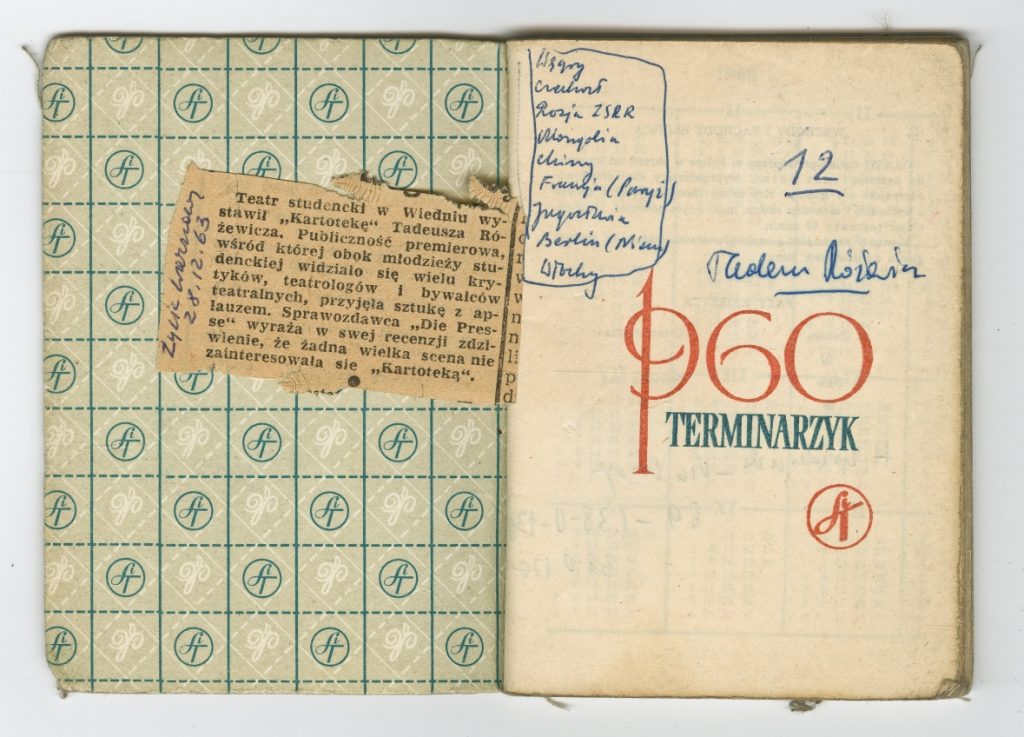 Życie Warszawy
28.12.63
Teatr studencki w Wiedniu wy-
stawił „Kartotekę” Tadeusza Ró-
żewicza. Publiczność premierowa,
wśród której obok młodzieży stu-
denckiej widziało się wielu kry-
tyków, teatrologów i bywalców
teatralnych, przyjęła sztukę z ap-
lauzem. Sprawozdawca „Die Pres-
se” wyraża w swej recenzji zdzi-
wienie, że żadna wielka scena nie
zainteresowała się „Kartoteką”.
Węgry
Rosja ZSRR
Mongolia
Chiny
Francja (Paryż)
Jugosławia
Berlin (Niem)
Włochy
12
Tadeusz Różewicz
1960
TERMINARZYK